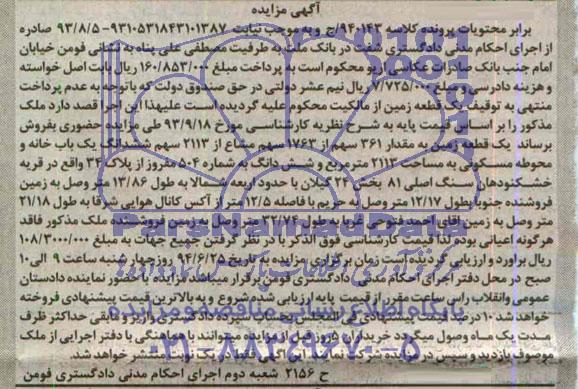 آگهی مزایده
برابر محتویات پرونده کلاسه ۹۴۰۱۴۳/ج و به موجب نیابت ۹۳۱۰۵۳۱۸۴۳۱۰۱۳۸۷-۹۳/۸/۵ صادره
از اجرای احکام مدنی دادگستری شفت در بانک ملت به طرفیت مصطفی علی پناه به نشانی فومن خیابان
امام جنب بانک صادرات عکاسی اریو محکوم است به پرداخت مبلغ ۱۶۰/۸۵۳/۰۰۰ ریال بابت اصل خواسته
و هزینه دادرسی و مبلغ ۷/۷۲۵/۰۰۰ ریال نیم عشر دولتی در حق صندوق دولت که باتوجه به عدم پرداخت
منتهی به توقیف یک قطعه زمین از مالکیت محکوم علیه گردیده است علیهذا این اجرا قصد دارد ملک
مذکور را بر اساس قیمت پایه به شرح نظریه کارشناسی مورخ ۹۳/۹/۱۸ طی مزایده حضوری بفروش
برساند یک قطعه زمین به مقدار ۳۶۱ سهم از ۱۷۶۳ سهم مشاع از ۲۱۱۳ سهم ششدانگ یک باب خانه و
محوطه مسکونی به مساحت ۲۱۱۳ مترمربع و شش دانگ به شماره ۵۰۴ مفروز از پلاک ۳۴ واقع در قریه
خشکنودهان سنگ اصلی ۸۱ بخش ۲۴ گیلان با حدود اربعه شمالا به طول ۱۳/۸۶ متر وصل به زمین
فروشنده جنوبا بطول ۱۲/۱۷ متر وصل به حریم با فاصله ۱۲/۵ متر از آکس کانال هوایی شرقا به طول ۲۱/۱۸
متر وصل به زمین اقای احمد فتوحی غربا به طول ۳۲/۷۴ متر وصل به زمین فروشنده ملک مذکور فاقد
هرگونه اعیانی بود لذا قیمت کارشناسی فوق الذکر با در نظر گرفتن جمیع جهات به مبلغ ۱۰۸/۳۰۰۰/۰۰۰
ریال براورد و ارزیابی گردیده است زمان برگزاری مزایده به تاریخ ۹۴/۶/۲۵ روز چهار شنبه ساعت ۹ الی ۱۰
صبح در محل دفتر اجرای احکام مدنی دادگستری فومن برقرار میباشد مزایده با حضور نماینده دادستان
عمومی وانقلاب راس ساعت مقرر از قیمت پایه ارزیابی شده شروع و به بالاترین قیمت پیشنهادی فروخته
خواهد شد ۱۰ درصد قیمت پیشنهادی فی المجلس بحساب سپرده دادگستری واریز و مابقی حداکثر ظرف
مدت یک ماه وصول میگردد خریداران 5 روز قبل از مزایده می توانند با هماهنگی با دفتر اجرایی از ملک
موصوف بازدید و سپس در جلسه شرکت نمایند این آگهی فقط یک نوبت منتشر خواهد شد.
ح ۲۱۵۶ شعبه دوم اجرای احکام مدنی دادگستری فومن
ParsNamadData
پایگاه اطلاع رسانی مناقصه و مزایده
۰۲۱-۸۸۳۴۹۶۷۰-۵